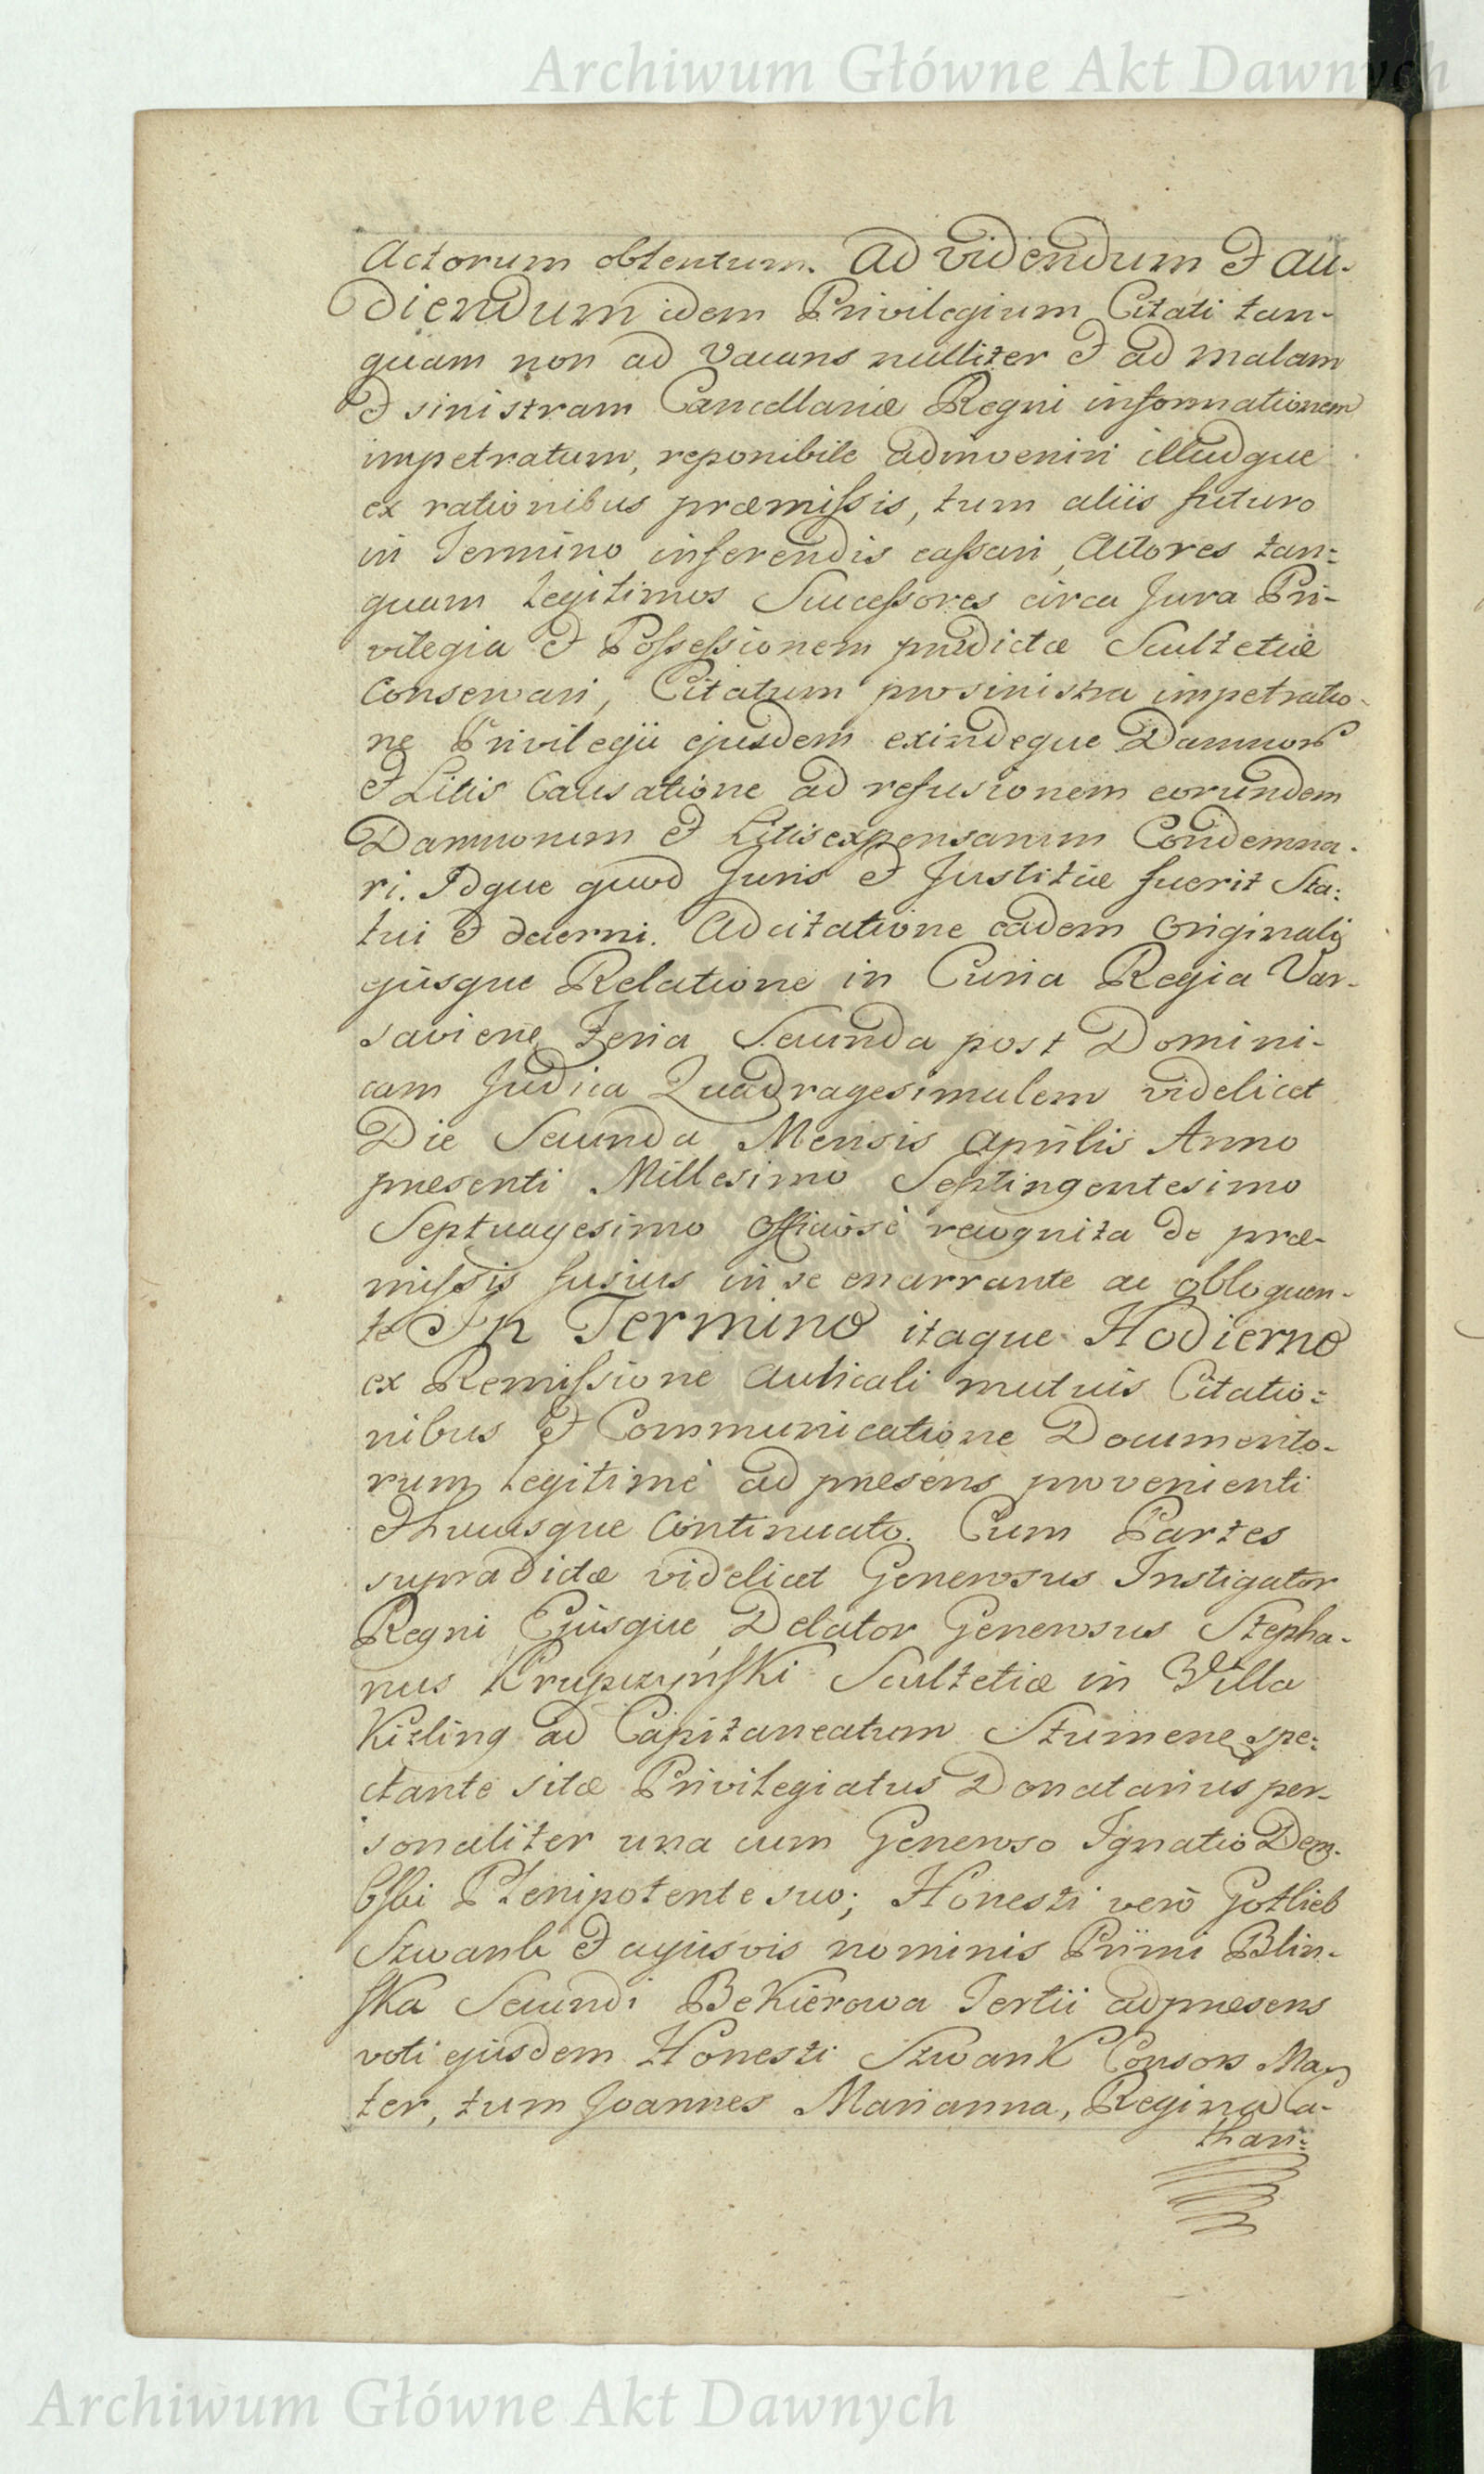 Archiwum Główne Akt Dawnych
Actorum obtentum. Ad videndum et au-
diendum idem Privilegium Citati tan-
quam non ad vacans nulliter et ad malam
et sinistram Cancellariæ Regni informationem
impetratum, reponibile adinveniri illudque
ex rationibus præmissis, tum aliis futuro
in Termino inferendis cassari, Actores tan=
quam legitimos Successores circa Jura Pri-
vilegia et Possessionem prædictæ Scultetiæ
conservari, Citatum pro sinistra impetratio-
ne Privilegii ejusdem exindeque Damnor
et Litis Causatione ad refusionem eorundem
Damnorum et Litisexpensarum Condemna-
ri. Idque quod Juris et Justitiæ fuerit Sta=
tui et decerni. Adcitatione eadem originali
ejusque Relatione in Curia Regia Var-
saviene Feria Secunda post Domini-
cam Judica Quadragesimalem videlicet
Die Secunda Mensis Aprilis Anno
præsenti Millesimo Septingentesimo
Septuagesimo officiosè recognita de præ-
missis fusius in se enarrante ac obloquen-
te In Termino itaque Hodierno
ex Remissione Aulicali mutuis Citatio=
nibus et Communicatione Documento-
rum legitimè ad præsens provenienti
et hucusque continuato. Cum Partes
supradictæ videlicet Generosus Instigator
Regni Ejusque Delator Generosus Stepha-
nus Krupczyński Scultetiæ in Villa
Kizling ad Capitaneatum Stumene spe=
ctante sitæ Privilegiatus Donatarius per-
sonaliter una cum Generoso Ignatio Dem-
bski Plenipotente suo; Honesti verò Gotlieb
Szwank et cujusvis nominis Primi Blin-
ska Secundi Bekierowa Tertii ad præsens
voti ejusdem Honesti Szwank Consors Ma-
ter, tum Joannes Marianna, Regina Ca-
thari=
Archiwum Główne Akt Dawnych